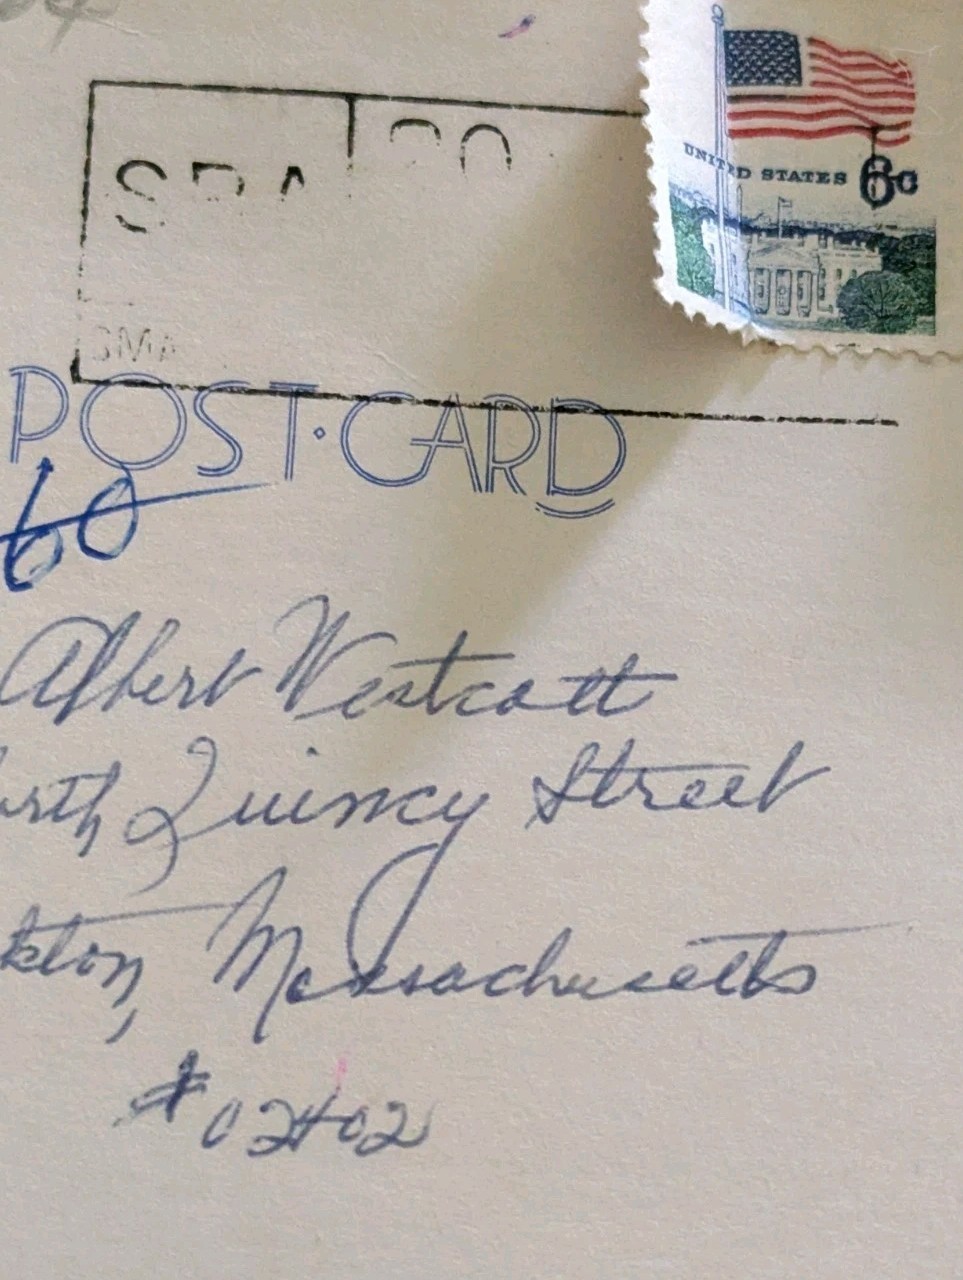 UNITED STATES 6c
POST·CARD
60
Albert Westcott
Quincy Street
Massachusetts
#02402